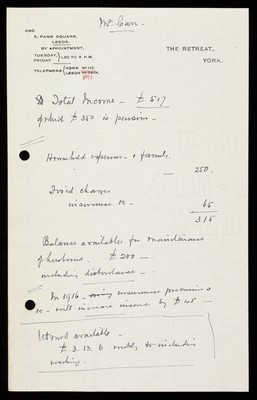 Mr Carr.
AND
5, PARK SQUARE,
LEEDS.
BY APPOINTMENT.
TUESDAY, FRIDAY } 1.30 TO 4 P.M.
TELEPHONE { YORK
LEEDS
THE RETREAT,
YORK.
Total Income — £517
of which £350 is pension —
Household expenses — & family
— 250.
Fixed charges
insurance &c — 65
315
Balance available for maintenance
of husband. £200 —
including disturbance —.
In 1916 — owing insurance premiums
&c — will increase income by £45 —
Utmost available —
£3.13.6 weekly to including
washing.